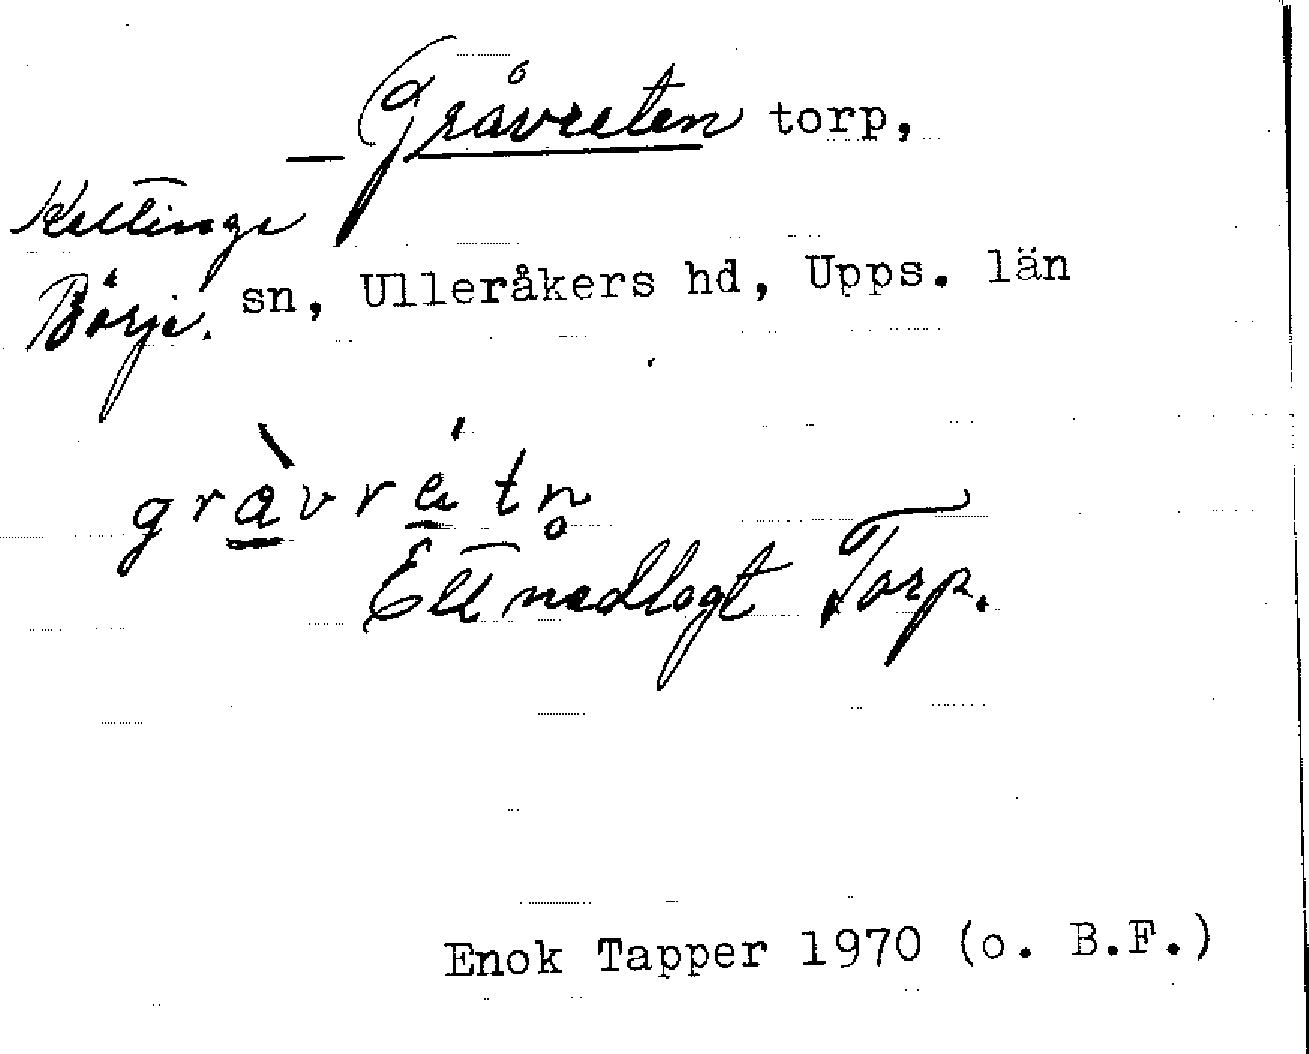 Gråvreten torp,
Kettinge
Börje. sn, Ulleråkers hd, Upps. län
gràvrétn̥
Ett nedlagt Torp.
Enok Tapper 1970 (o. B.F.)